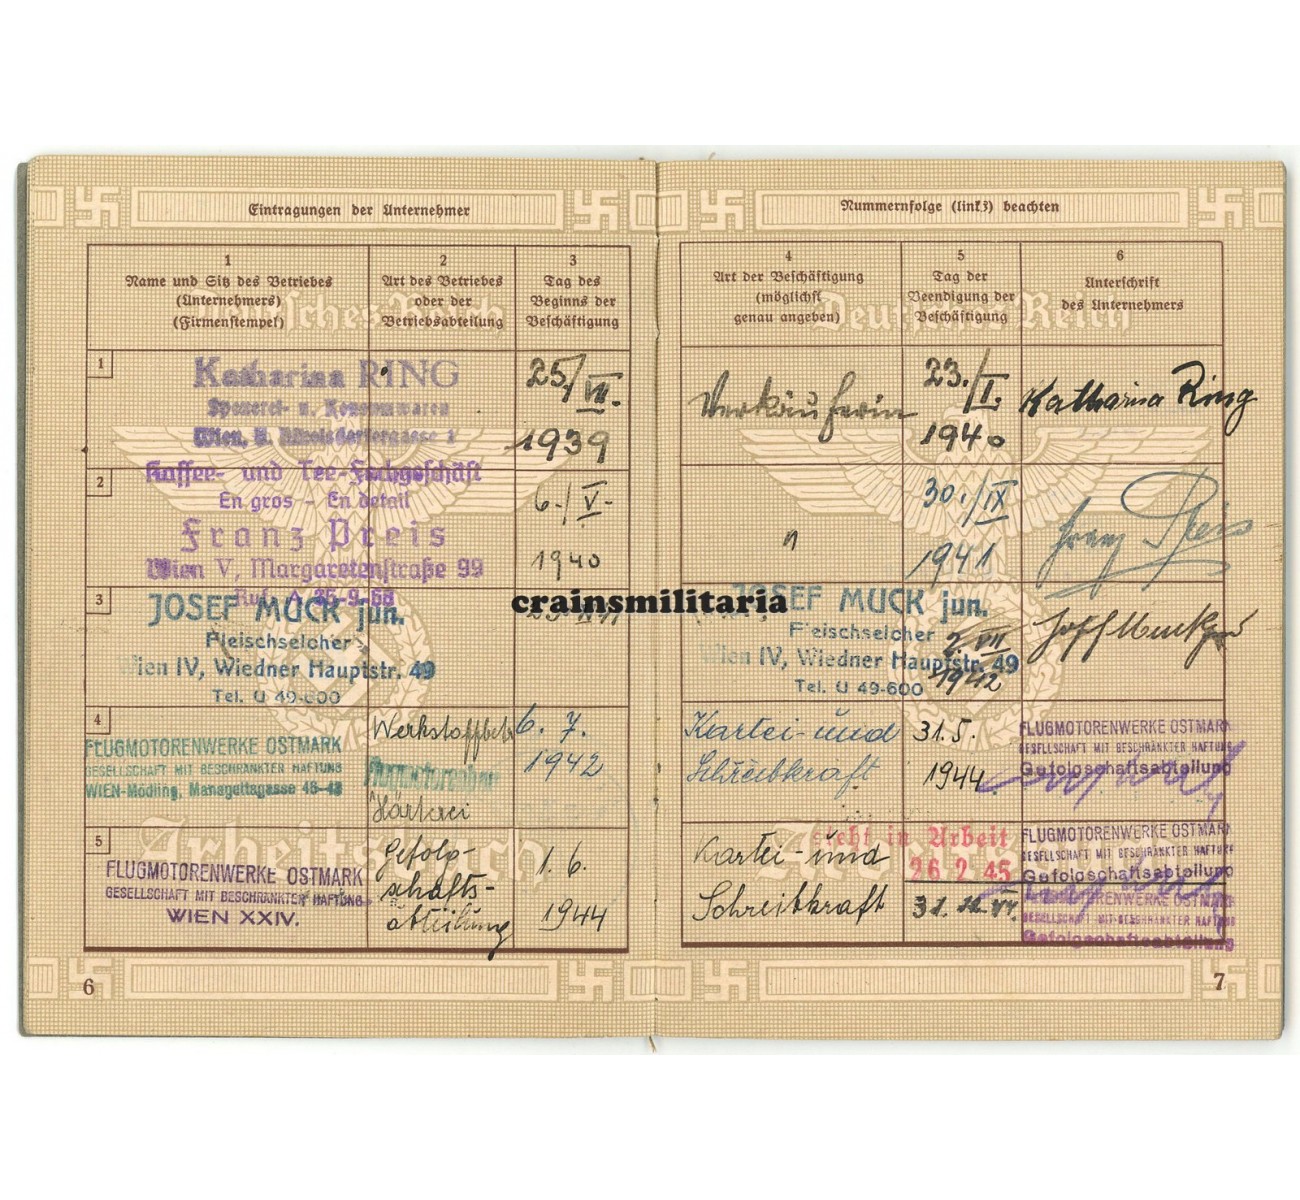 Eintragungen der Unternehmer
1
Name und Sitz des Betriebes
(Unternehmers)
(Firmenstempel)
2
Art des Betriebes
oder der
Betriebsabteilung
3
Tag des
Beginns der
Beschäftigung
1
Katharina RING
Spezerei- u. Konsumwaren
Wien, V. Nikolsdorfergasse 1
25./VII.
1939
2
Kaffee- und Tee-Fachgeschäft
En gros - En detail
Franz Preis
Wien V, Margaretenstraße 99
Ruf A 35-9-68
6./V.
1940
3
JOSEF MUCK jun.
Fleischselcher
Wien IV, Wiedner Hauptstr. 49
Tel. U 49-600
crainsmilitaria
4
FLUGMOTORENWERKE OSTMARK
GESELLSCHAFT MIT BESCHRÄNKTER HAFTUNG
WIEN-Mödling, Managettagasse 46-48
Werkstoffbetr
Härterei
6. 7.
1942
5
FLUGMOTORENWERKE OSTMARK
GESELLSCHAFT MIT BESCHRÄNKTER HAFTUNG
WIEN XXIV.
Gefolg-
schafts-
abteilung
1. 6.
1944
Arbeitsbuch
6
Nummernfolge (links) beachten
4
Art der Beschäftigung
(möglichst
genau angeben)
5
Tag der
Beendigung der
Beschäftigung
6
Unterschrift
des Unternehmers
Deutsches Reich
Verkäuferin
23./I.
1940
Katharina Ring
"
30./IX
1941
Franz Preis
JOSEF MUCK jun.
Fleischselcher
Wien IV, Wiedner Hauptstr. 49
Tel. U 49-600
2. VII
1942
Kartei- und
Schreibkraft
31. 5.
1944
FLUGMOTORENWERKE OSTMARK
GESELLSCHAFT MIT BESCHRÄNKTER HAFTUNG
Gefolgschaftsabteilung
Kartei- und
Schreibkraft
steht in Arbeit
26. 2. 45
FLUGMOTORENWERKE OSTMARK
GESELLSCHAFT MIT BESCHRÄNKTER HAFTUNG
Gefolgschaftsabteilung
FLUGMOTORENWERKE OSTMARK
GESELLSCHAFT MIT BESCHRÄNKTER HAFTUNG
Gefolgschaftsabteilung
7